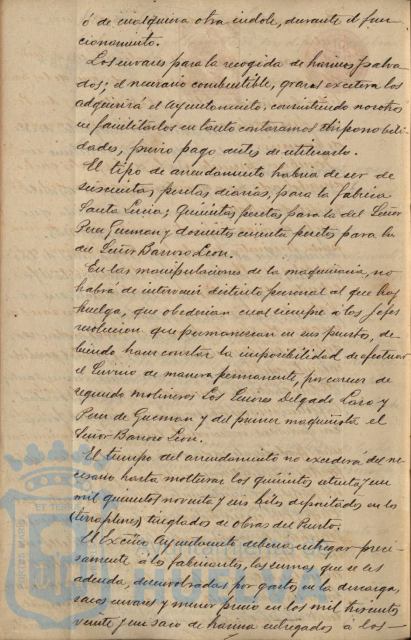 ó de cualquiera otra indole, durante el fun-
cionamiento.
Los envases para la recogida de harinas y salva-
dos; el necesario combustible, grasas etcetera los
adquirirá el Ayuntamiento, consintiendo nosotros
en facilitarlos en tanto contaramos disponibili-
dades, previo pago antes de utilizarlo.
El tipo de arrendamiento habria de ser de
seiscientas pesetas diarias, para la fabrica
Santa Lucia; quinientas pesetas para la del Señor
Perez Guzman y doscientas cincuenta pesetas para la
del Señor Barroso Leon.
En las manipulaciones de la maquinaria, no
habrá de intervenir distinto personal al que hoy
huelga, que obedecerian cual siempre á los Jefes
que permanezcan en sus puestos, de-
biendo hacer constar la imposibilidad de efectuar
el servicio de manera permanente, por carecer de
segundo molineros Los Señores Delgado Lazo y
Perez de Guzman y del primer maquinista el
Señor Barroso Leon.
El tiempo del arrendamiento no excederá del ne-
cesario hasta molturar los quinientos ochenta y un
mil quinientos noventa y seis kilos depositados en los
(terraplenes) tinglados de obras del Puerto.
El Excmo Ayuntamiento deberia entregar preci-
samente á los fabricantes, las sumas que se les
adeuda, desembolsadas por gastos en la descarga,
sacos envases y menor precio en los mil trescientos
veinte y un saco de harina entregados á los